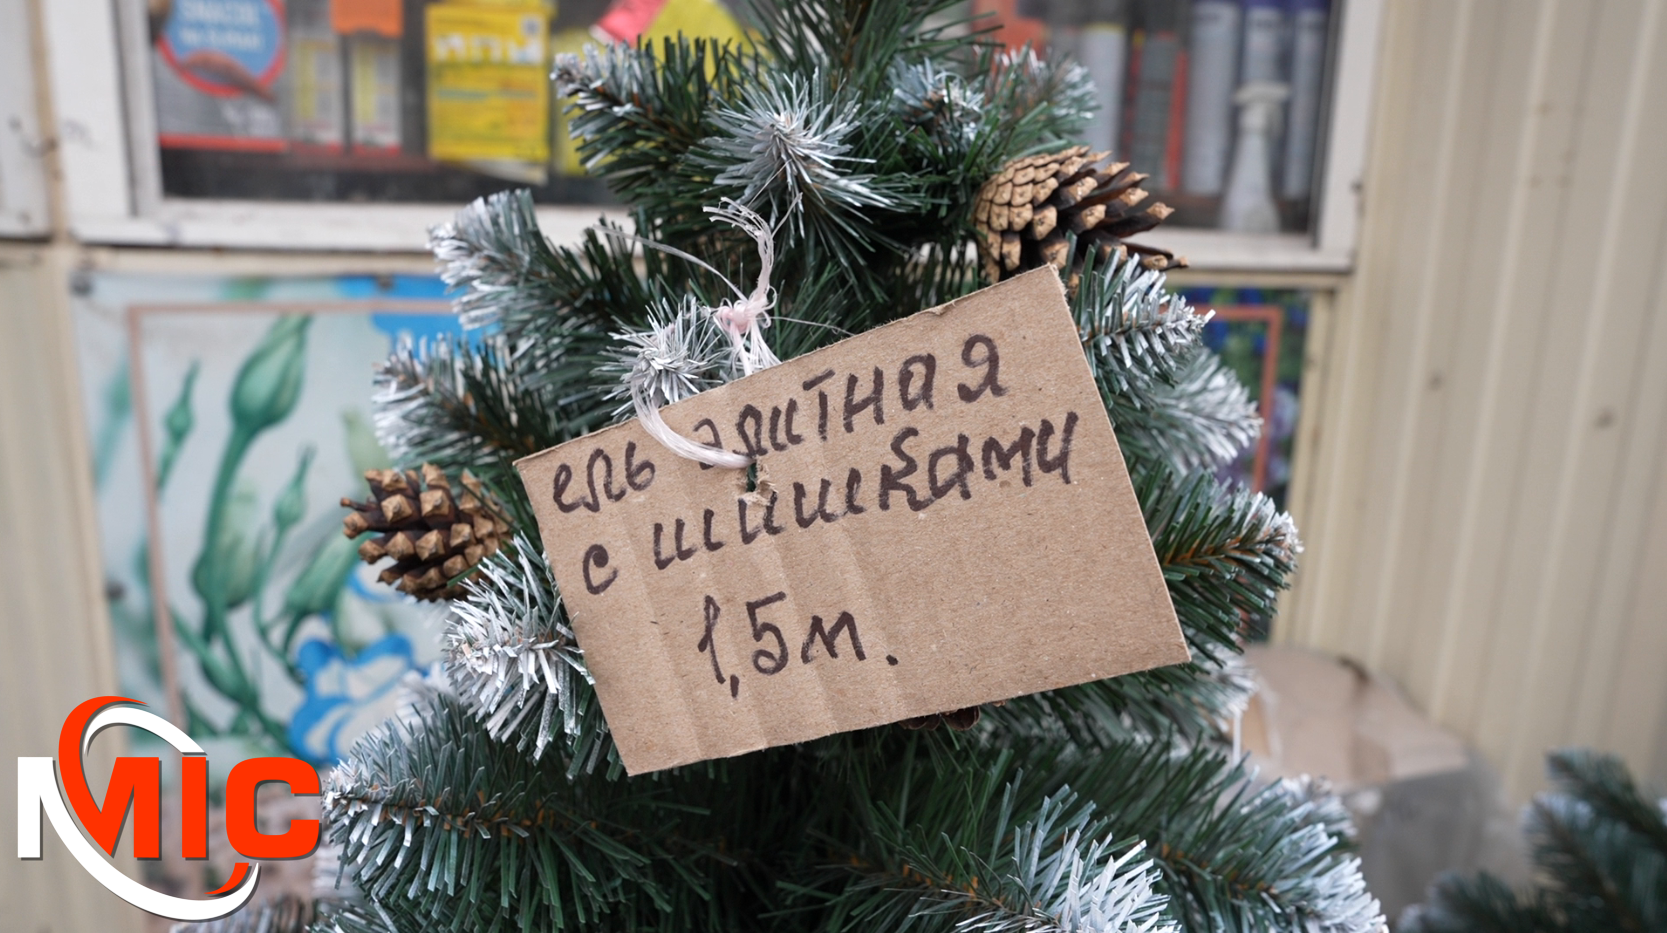 ель элитная
с шишками
1,5м.
MIC